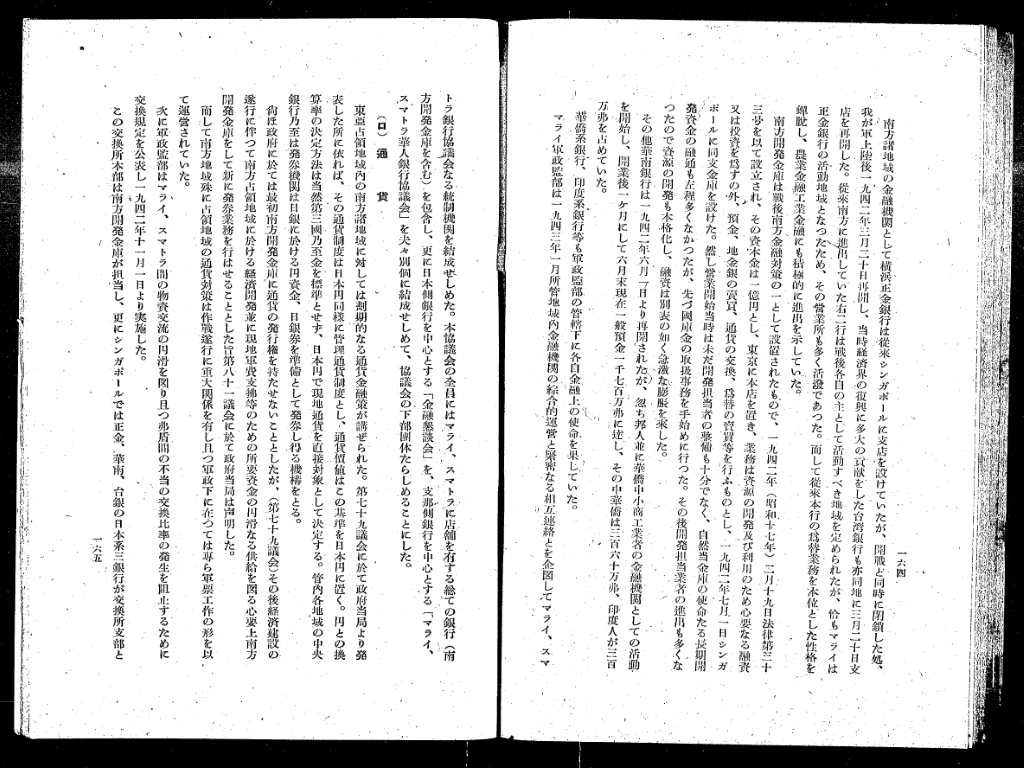 南方諸地域の金融機関として横浜正金銀行は従来シンガポールに支店を設けていたが、開戦と同時に閉鎖した処、
我が軍上陸後一九四二年三月二十日再開し、当時経済界の復興に多大の貢献をした台湾銀行も亦同地に三月二十日支
店を再開した。従来南方に進出していた右二行は戦後各自の主として活動すべき地域を定められたが、恰もマライは
正金銀行の活動地域となつたため、その営業所も多く活潑であつた。而して従来本行の為替業務を本位とした性格を
蟬脱し、農業金融工業金融にも積極的に進出を示していた。
南方開発金庫は戦後南方金融対策の一として設置されたもので、一九四二年（昭和十七年）二月十九日法律第三十
三号を以て設立され、その資本金は一億円とし、東京に本店を置き、業務は資源の開発及び利用のため必要なる融資
又は投資を為すの外、預金、地金銀の売買、通貨の交換、為替の売買等を行ふものとし、一九四二年七月一日シンガ
ポールに同支金庫を設けた。然し営業開始当時は未だ開発担当者の整備も十分でなく、自然当金庫の使命たる長期開
発資金の融通も左程多くなかつたが、先づ國庫金の取扱事務を手始めに行つた。その後開発担当業者の進出も多くな
つたので資源の開発も本格化し、融資は別表の如く急激な膨脹を来した。
その他華南銀行は一九四二年六月一日より再開されたが、忽ち邦人並に華僑中小商工業者の金融機関としての活動
を開始し、開業後一ケ月にして六月末現在一般預金一千七百万弗に達し、その中華僑は三百六十万弗、印度人が三百
万弗を占めていた。
華僑系銀行、印度系銀行等も軍政監部の管轄下に各自金融上の使命を果していた。
マライ軍政監部は一九四三年一月所管地域内金融機関の綜合的運営と緊密なる相互連絡とを企図してマライ、スマ
一六四
トラ銀行協議会なる統制機関を結成せしめた。本協議会の会員にはマライ、スマトラに店舗を有する総ての銀行（南
方開発金庫を含む）を包含し、更に日本側銀行を中心とする「金融懇談会」を、支那側銀行を中心とする「マライ、
スマトラ華人銀行協議会」を夫々別個に結成せしめて、協議会の下部団体たらしめることにした。
（ロ）通　貨
東亜占領地域内の南方諸地域に対しては劃期的なる通貨金融策が講ぜられた。第七十九議会に於て政府当局より発
表した所に依れば、その通貨制度は日本円同様に管理通貨制度とし、通貨価値はこの基準を日本円に置く。円との換
算率の決定方法は当然第三國乃至金を標準とせず、日本円で現地通貨を直接対象として決定する。管内各地域の中央
銀行乃至は発券機関は日銀に於ける円資金、日銀券を準備として発券し得る機構をとる。
尚ほ政府に於ては最初南方開発金庫に通貨の発行権を持たせないこととしたが、（第七十九議会）その後経済建設の
遂行に伴つて南方占領地域に於ける経済開発並に現地軍費支払等のための所要資金の円滑なる供給を図る必要上南方
開発金庫をして新に発券業務を行はせることとした旨第八十一議会に於て政府当局は声明した。
而して南方地域殊に占領地域の通貨対策は作戦遂行に重大関係を有し且つ軍政下に在つては専ら軍票工作の形を以
て運営されていた。
次に軍政監部はマライ、スマトラ間の物資交流の円滑を図り且つ弗盾間の不当の交換比率の発生を阻止するために
交換規定を公表し一九四二年十一月一日より実施した。
この交換所本部は南方開発金庫が担当し、更にシンガポールでは正金、華南、台銀の日本系三銀行が交換所支部と
一六五